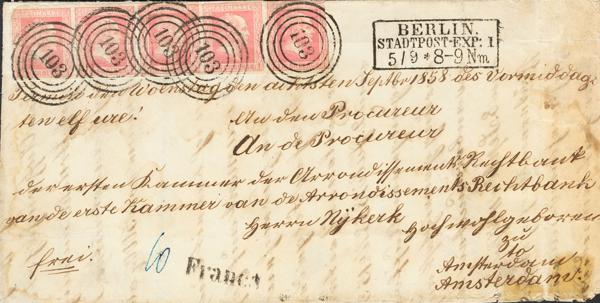 FREIMARKE
103 103 103 103
BERLIN.
STADTPOST-EXP. I
5/9 * 8-9 Nm
Termin den Woenstag den achtsten Septbr 1858 des Vormiddags
ten elf ure!
An den Procureur
An de Procureur
der ersten Kammer der Arrondissements Rechtbank
van de erste Kammer van de Arrondissements Rechtbank
Herrn Nijkerk
Hochwohlgeboren
zu
to
Amsterdam
Amsterdam.
frei.
60
Franco